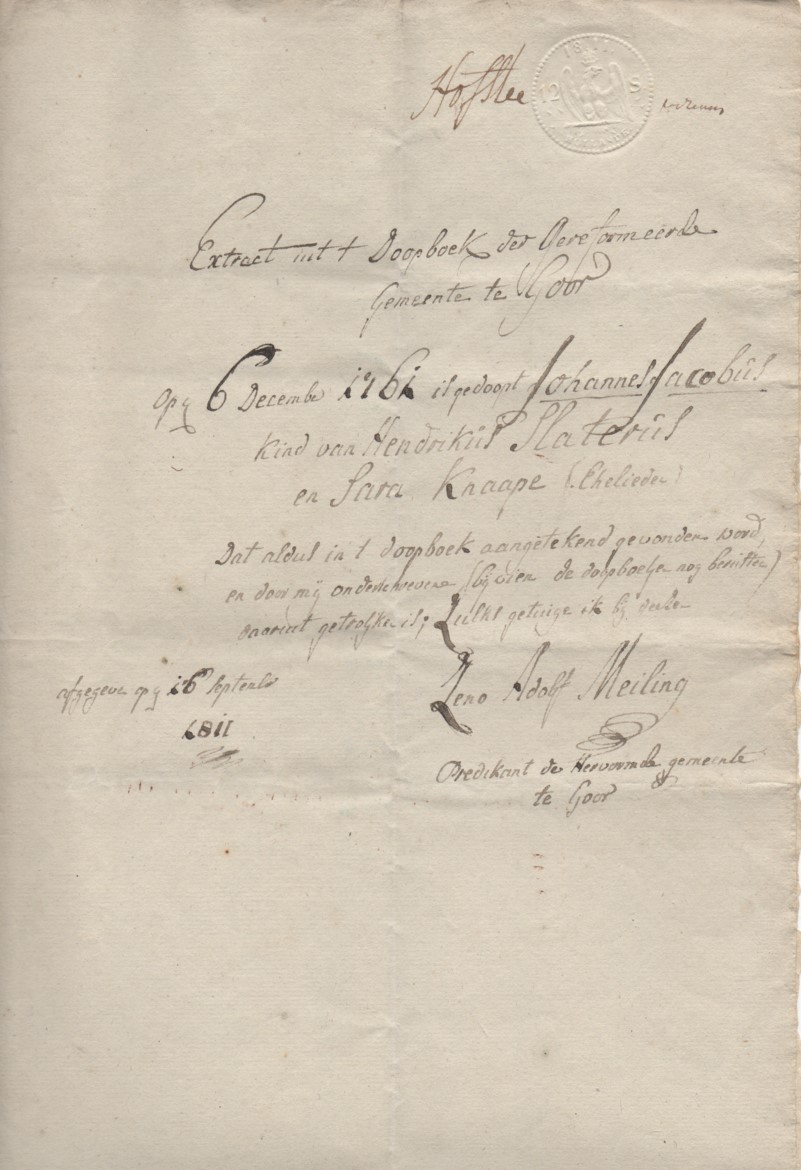 Hofstee
1811
12 S
Extract uit t Doopboek der Gereformeerde
Gemeente te Goor
Op 6 Decembr 1761 is gedoopt Johannes Jacobûs
kind van Hendrikûs Slaterûs
en Sara Knaape (Ehelieden)
Dat aldus in t doopboek aangetekend gevonden word,
en door mij onderschrevene (bij wien de doopboekje nog berusten)
daaruit getrokken is; Zulks getuige ik bij deeze
Zeno Adolf Meiling
afgegeven op 16 Septembr
1811
Predikant de Hervormde gemeente
te Goor